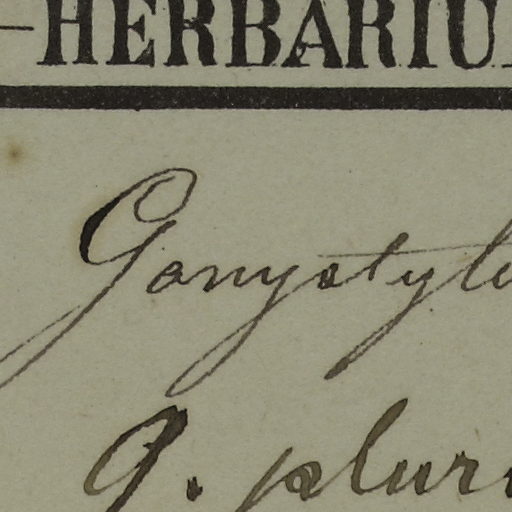 -HERBARIU
Gonystyl
G. pluri